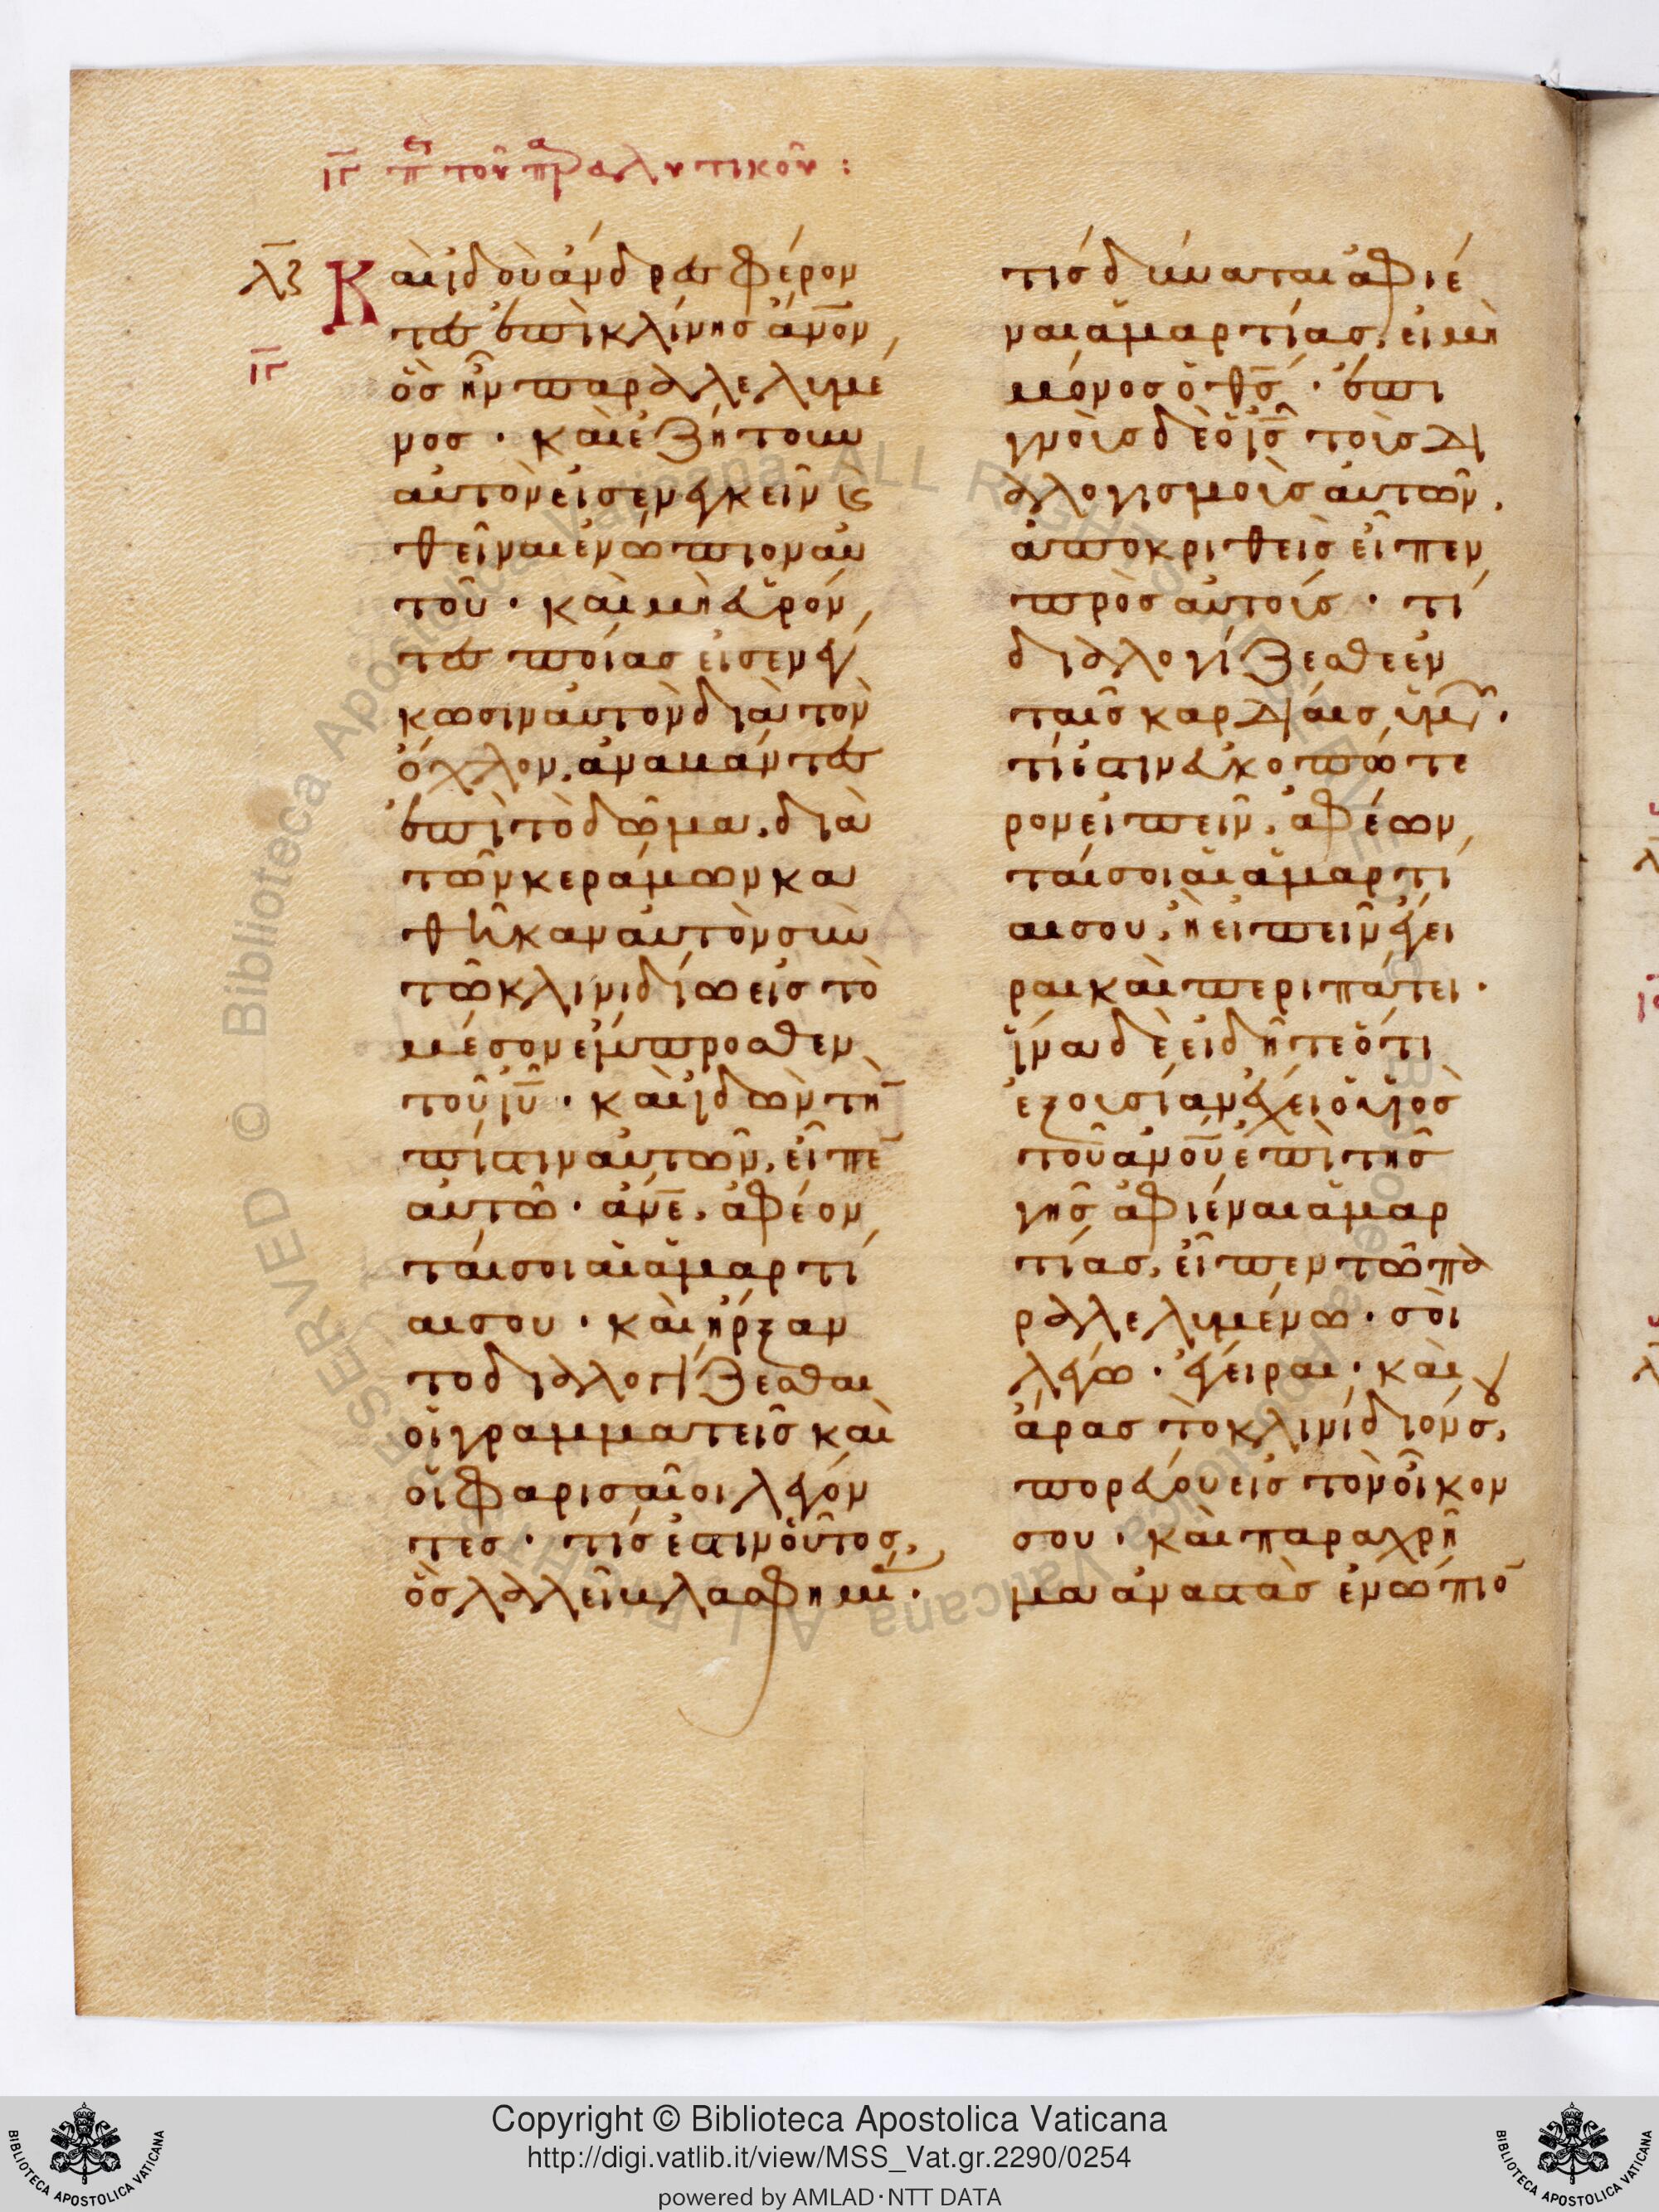 ιγ πε τοῦ πραλυτικοῦ :
λζ
ιγ
Καὶ ἰδοὺ ἄνδρες φέρον
τες ἐπὶ κλίνης ἄνον,
ὃς ἦν παραλελυμέ
νος · καὶ ἐζήτουν
αὐτὸν εἰσενεγκεῖν κ
θεῖναι ἐνώπιον αὐ
τοῦ · καὶ μὴ εὑρόν,
τες ποίας εἰσενέγ
κωσιν αὐτὸν διὰ τὸν
ὄχλον, ἀναβάντες
ἐπὶ τὸ δῶμα, διὰ
τῶν κεράμων κα
θῆκαν αὐτὸν σὺν
τῶ κλινιδίω εἰς τὸ
μέσον ἔμπροσθεν
τοῦ ἰυ · καὶ ἰδὼν τὴ
πίστιν αὐτῶν, εἶπε
αὐτῶ · ἄνε, ἀφέον
ταί σοι αἱ ἁμαρτί
αι σου · καὶ ἤρξαν
το διαλογίζεσθαι
οἱ γραμματεῖς καὶ
οἱ φαρισαῖοι λέγον
τες · τίς ἐστιν οὗτος,
ὃς λαλεῖ βλασφημί ·
τίς δύναται ἀφιέ
ναι ἁμαρτίας, εἰ μὴ
μόνος ὁ θς · ἐπι
γνοὺς δὲ ὁ ις τοὺς δι
αλογισμοὺς αὐτῶν,
ἀποκριθεὶς εἶπεν
πρὸς αὐτούς · τί
διαλογίζεσθε ἐν
ταῖς καρδίαις ὑμῶν ·
τί ἐστιν εὐκοπώτε
ρον εἰπεῖν, ἀφέων
ταί σοι αἱ ἁμαρτί
αι σου, ἢ εἰπεῖν ἔγει
ραι καὶ περιπάτει ·
ἵνα δὲ εἰδῆτε ὅτι
ἐξουσίαν ἔχει ὁ υἱὸς
τοῦ ἀνου ἐπὶ τῆς
γῆς ἀφιέναι ἁμαρ
τίας, εἶπεν τῶ πα
ραλελυμένω · σοὶ
λέγω · ἔγειραι · καὶ
ἄρας τὸ κλινίδιόν σου,
πορεύου εἰς τὸν οἶκον
σου · καὶ παραχρῆ
μα ἀναστὰς ἐνώπιο
© Biblioteca Apostolica Vaticana ALL RIGHTS RESERVED
Copyright © Biblioteca Apostolica Vaticana
http://digi.vatlib.it/view/MSS_Vat.gr.2290/0254
powered by AMLAD·NTT DATA
BIBLIOTECA APOSTOLICA VATICANA
BIBLIOTECA APOSTOLICA VATICANA